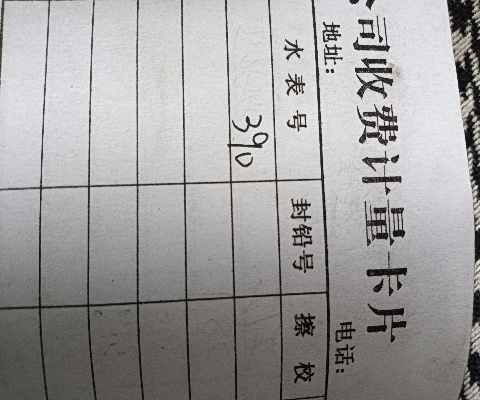 司收费计量卡片
地址： 电话：
水表号 封铅号 擦校
390